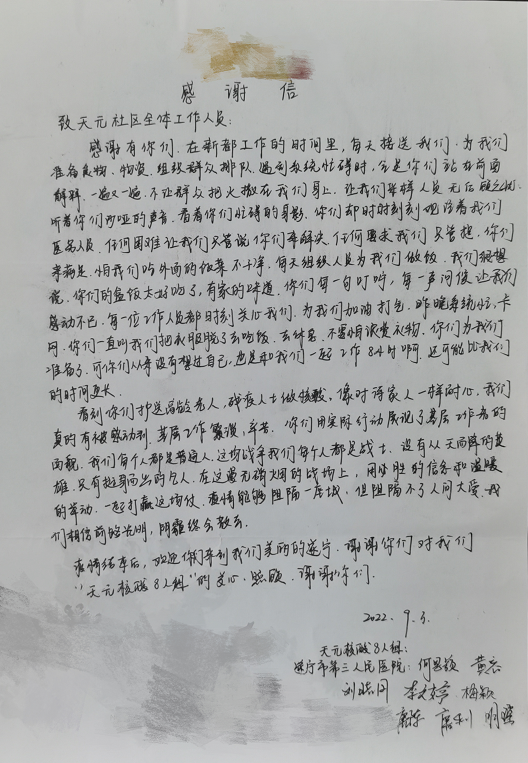 感谢信
致天元社区全体工作人员：
感谢有你们，在新都工作的时间里，每天接送我们，为我们
准备食物、物资，组织群众排队。遇到系统忙碍时，总是你们站在前面
解释，一遍又一遍，不让群众把火撒在我们身上，让我们采样人员无后顾之忧。
听着你们沙哑的声音，看着你们忙碍的身影，你们却时时刻刻
医务人员，任何困难让我们只管说你们来解决，任何要求我们只管提，你们
来满足，怕我们吃外面的饭菜不干净，每天组织人员为我们做饭，我们很想
说，你们的盒饭太好吃了，有家的味道，你们每一句叮咛，每一声问候让我们
感动不已，每一位工作人员都时刻关心我们，为我们加油打气。昨晚系统忙，卡
网，你们一直叫我们把衣服脱了去吃饭，去休息，不要怕浪费衣物，你们为我们
准备了，可你们从来没有想过自己，也是和我们一起工作8小时啊，还可能比我们
的时间更长
看到你们护送高龄老人，残疾人士做核酸，像对待家人一样耐心，我们
真的有被感动到，基层工作繁琐，辛苦，你们用实际行动展现了基层工作者的
面貌，我们每个人都是普通人，这场战争我们每个人都是战士，没有从天而降的英
雄，只有挺身而出的凡人，在这无硝烟的战场上，用必胜的信念和温暖
的举动，一起打赢这场仗，疫情能够阻隔一座城，但阻隔不了人间大爱，我
们相信前路光明，阴霾终会散去。
疫情结束后，欢迎你们来到我们美丽的遂宁，谢谢你们对我们
“天元核酸8人组”的关心、照顾，谢谢你们。
2022. 9. 3.
天元核酸8人组：
遂宁市第三人民医院：何思颖 黄宏
刘晓同 李文婷 梅颖
唐陈 唐利 明